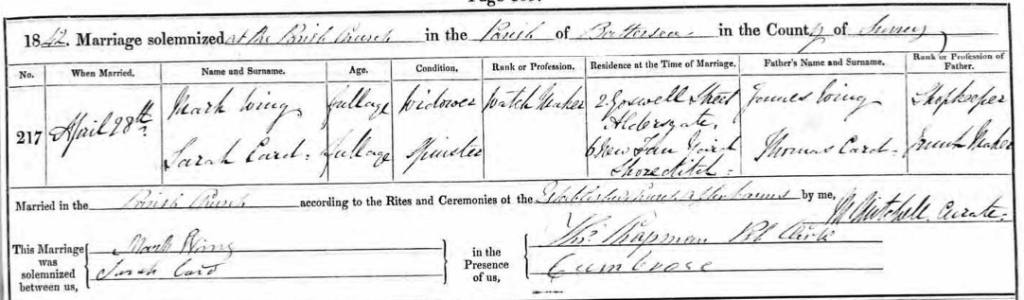 1842. Marriage solemnized at the Parish Church in the Parish of Battersea in the County of Surrey
No. When Married. Name and Surname. Age. Condition. Rank or Profession. Residence at the Time of Marriage. Father's Name and Surname. Rank or Profession of Father.
217 April 28th. Mark Wing full age Widower Watch Maker 2 Goswell Street Aldersgate. James Wing Shopkeeper
Sarah Card. full age Spinster 6 New Yard Shoreditch Thomas Card Trunk Maker
Married in the Parish Church according to the Rites and Ceremonies of the Established Church after banns by me, Mitchell Curate
This Marriage was solemnized between us, Mark Wing
Sarah Card
in the Presence of us, Thos. Chapman Clerk